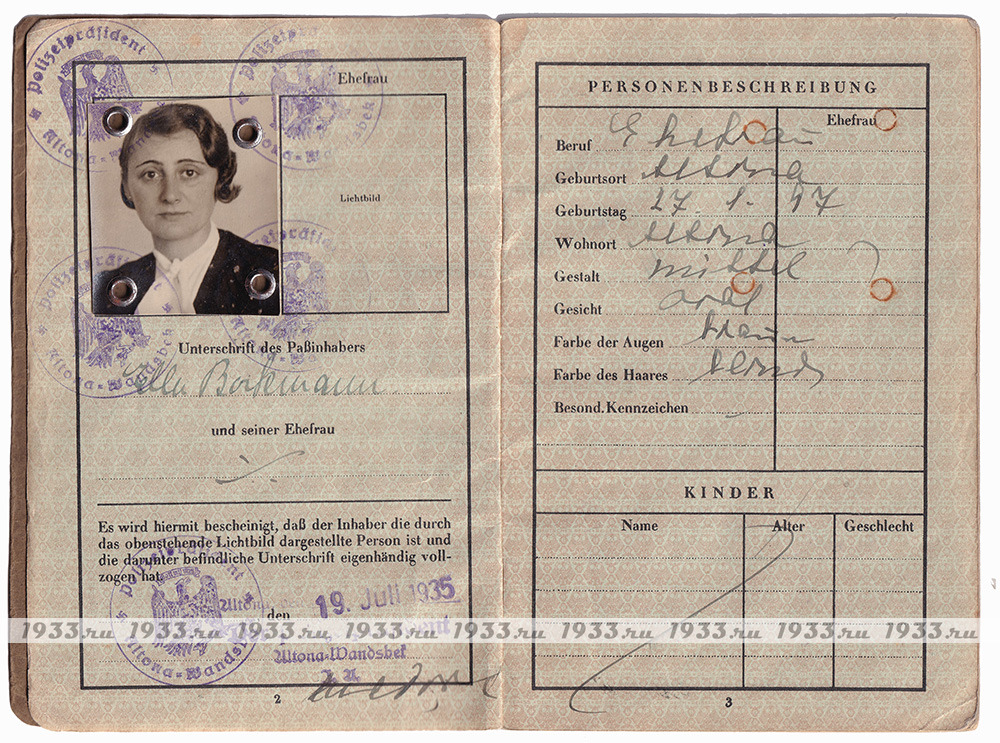 Polizeipräsident
Altona-Wandsbek
Ehefrau
Lichtbild
Unterschrift des Paßinhabers
Ella Borkmann
und seiner Ehefrau
Es wird hiermit bescheinigt, daß der Inhaber die durch
das obenstehende Lichtbild dargestellte Person ist und
die darunter befindliche Unterschrift eigenhändig voll-
zogen hat.
Polizeipräsident
Altona-Wandsbek
Altona den 19. Juli 1935
Altona-Wandsbek
2
PERSONENBESCHREIBUNG
Ehefrau
Beruf Ehefrau
Geburtsort Altona
Geburtstag 27. 1. 97
Wohnort Altona
Gestalt mittel
Gesicht oval
Farbe der Augen braun
Farbe des Haares blond
Besond. Kennzeichen -
KINDER
Name Alter Geschlecht
1933.ru 1933.ru 1933.ru 1933.ru 1933.ru 1933.ru 1933.ru 1933.ru 1933.ru
3